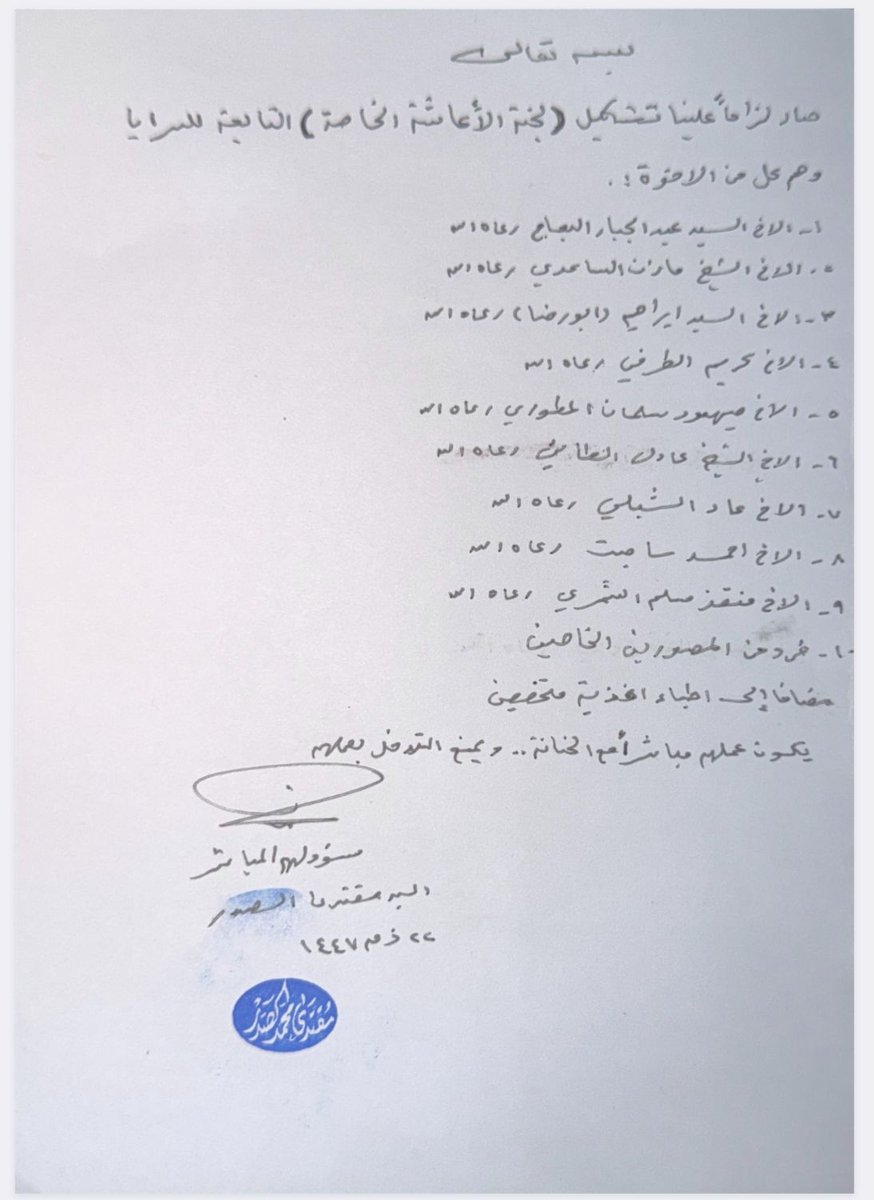 بسمه تعالى
صار لزاماً علينا تشكيل (لجنة الأعاشة الخاصة) التابعة للسرايا
وهم كل من الاخوة :.
١- الاخ السيد عبد الجبار رعاه الله
٢- الاخ الشيخ مازن الساعدي رعاه الله
٣- الاخ السيد ابراهيم (ابو رضا) رعاه الله
٤- الاخ كريم الطرفي رعاه الله
٥- الاخ صيهود سلمان المطوري رعاه الله
٦- الاخ الشيخ عادل الطائي رعاه الله
٧- الاخ الشبلي رعاه الله
٨- الاخ احمد رعاه الله
٩- الاخ منقذ مسلم الشمري رعاه الله
١٠- فرد من المصورين الخاصين
مضافا إلى اطباء اغذية متخصصين
يكون عملهم مباشراً مع الحنانة .. ويمنع التدخل بعملهم
مسؤولهم المباشر
السيد مقتدى الصدر
٢٢ ١٤٤٧
مقتدى محمد الصدر